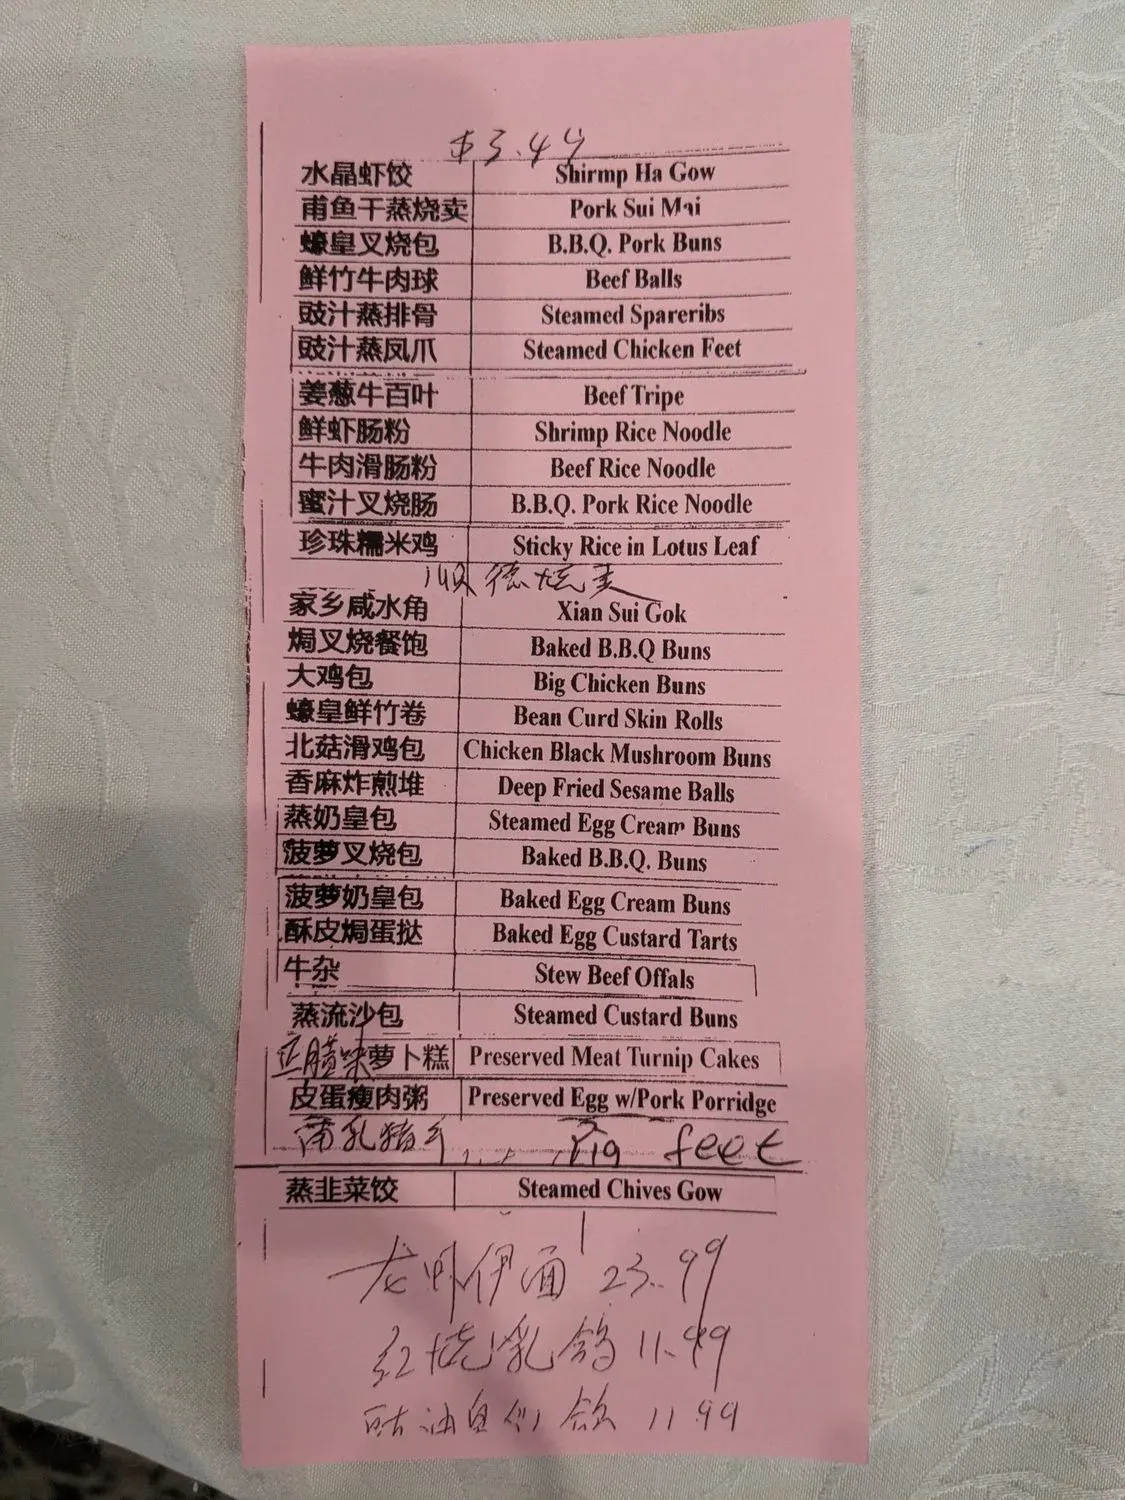 $3.49
水晶虾饺 Shirmp Ha Gow
甫鱼干蒸烧卖 Pork Sui Mai
蠔皇叉烧包 B.B.Q. Pork Buns
鲜竹牛肉球 Beef Balls
豉汁蒸排骨 Steamed Spareribs
豉汁蒸凤爪 Steamed Chicken Feet
姜葱牛百叶 Beef Tripe
鲜虾肠粉 Shrimp Rice Noodle
牛肉滑肠粉 Beef Rice Noodle
蜜汁叉烧肠 B.B.Q. Pork Rice Noodle
珍珠糯米鸡 Sticky Rice in Lotus Leaf
顺德烧卖
家乡咸水角 Xian Sui Gok
焗叉烧餐饱 Baked B.B.Q Buns
大鸡包 Big Chicken Buns
蠔皇鲜竹卷 Bean Curd Skin Rolls
北菇滑鸡包 Chicken Black Mushroom Buns
香麻炸煎堆 Deep Fried Sesame Balls
蒸奶皇包 Steamed Egg Cream Buns
菠萝叉烧包 Baked B.B.Q. Buns
菠萝奶皇包 Baked Egg Cream Buns
酥皮焗蛋挞 Baked Egg Custard Tarts
牛杂 Stew Beef Offals
蒸流沙包 Steamed Custard Buns
腊味萝卜糕 Preserved Meat Turnip Cakes
皮蛋瘦肉粥 Preserved Egg w/Pork Porridge
南乳猪手 Pig feet
蒸韭菜饺 Steamed Chives Gow
龙虾伊面 23.99
红烧乳鸽 11.99
豉油皇 鸽 11.99